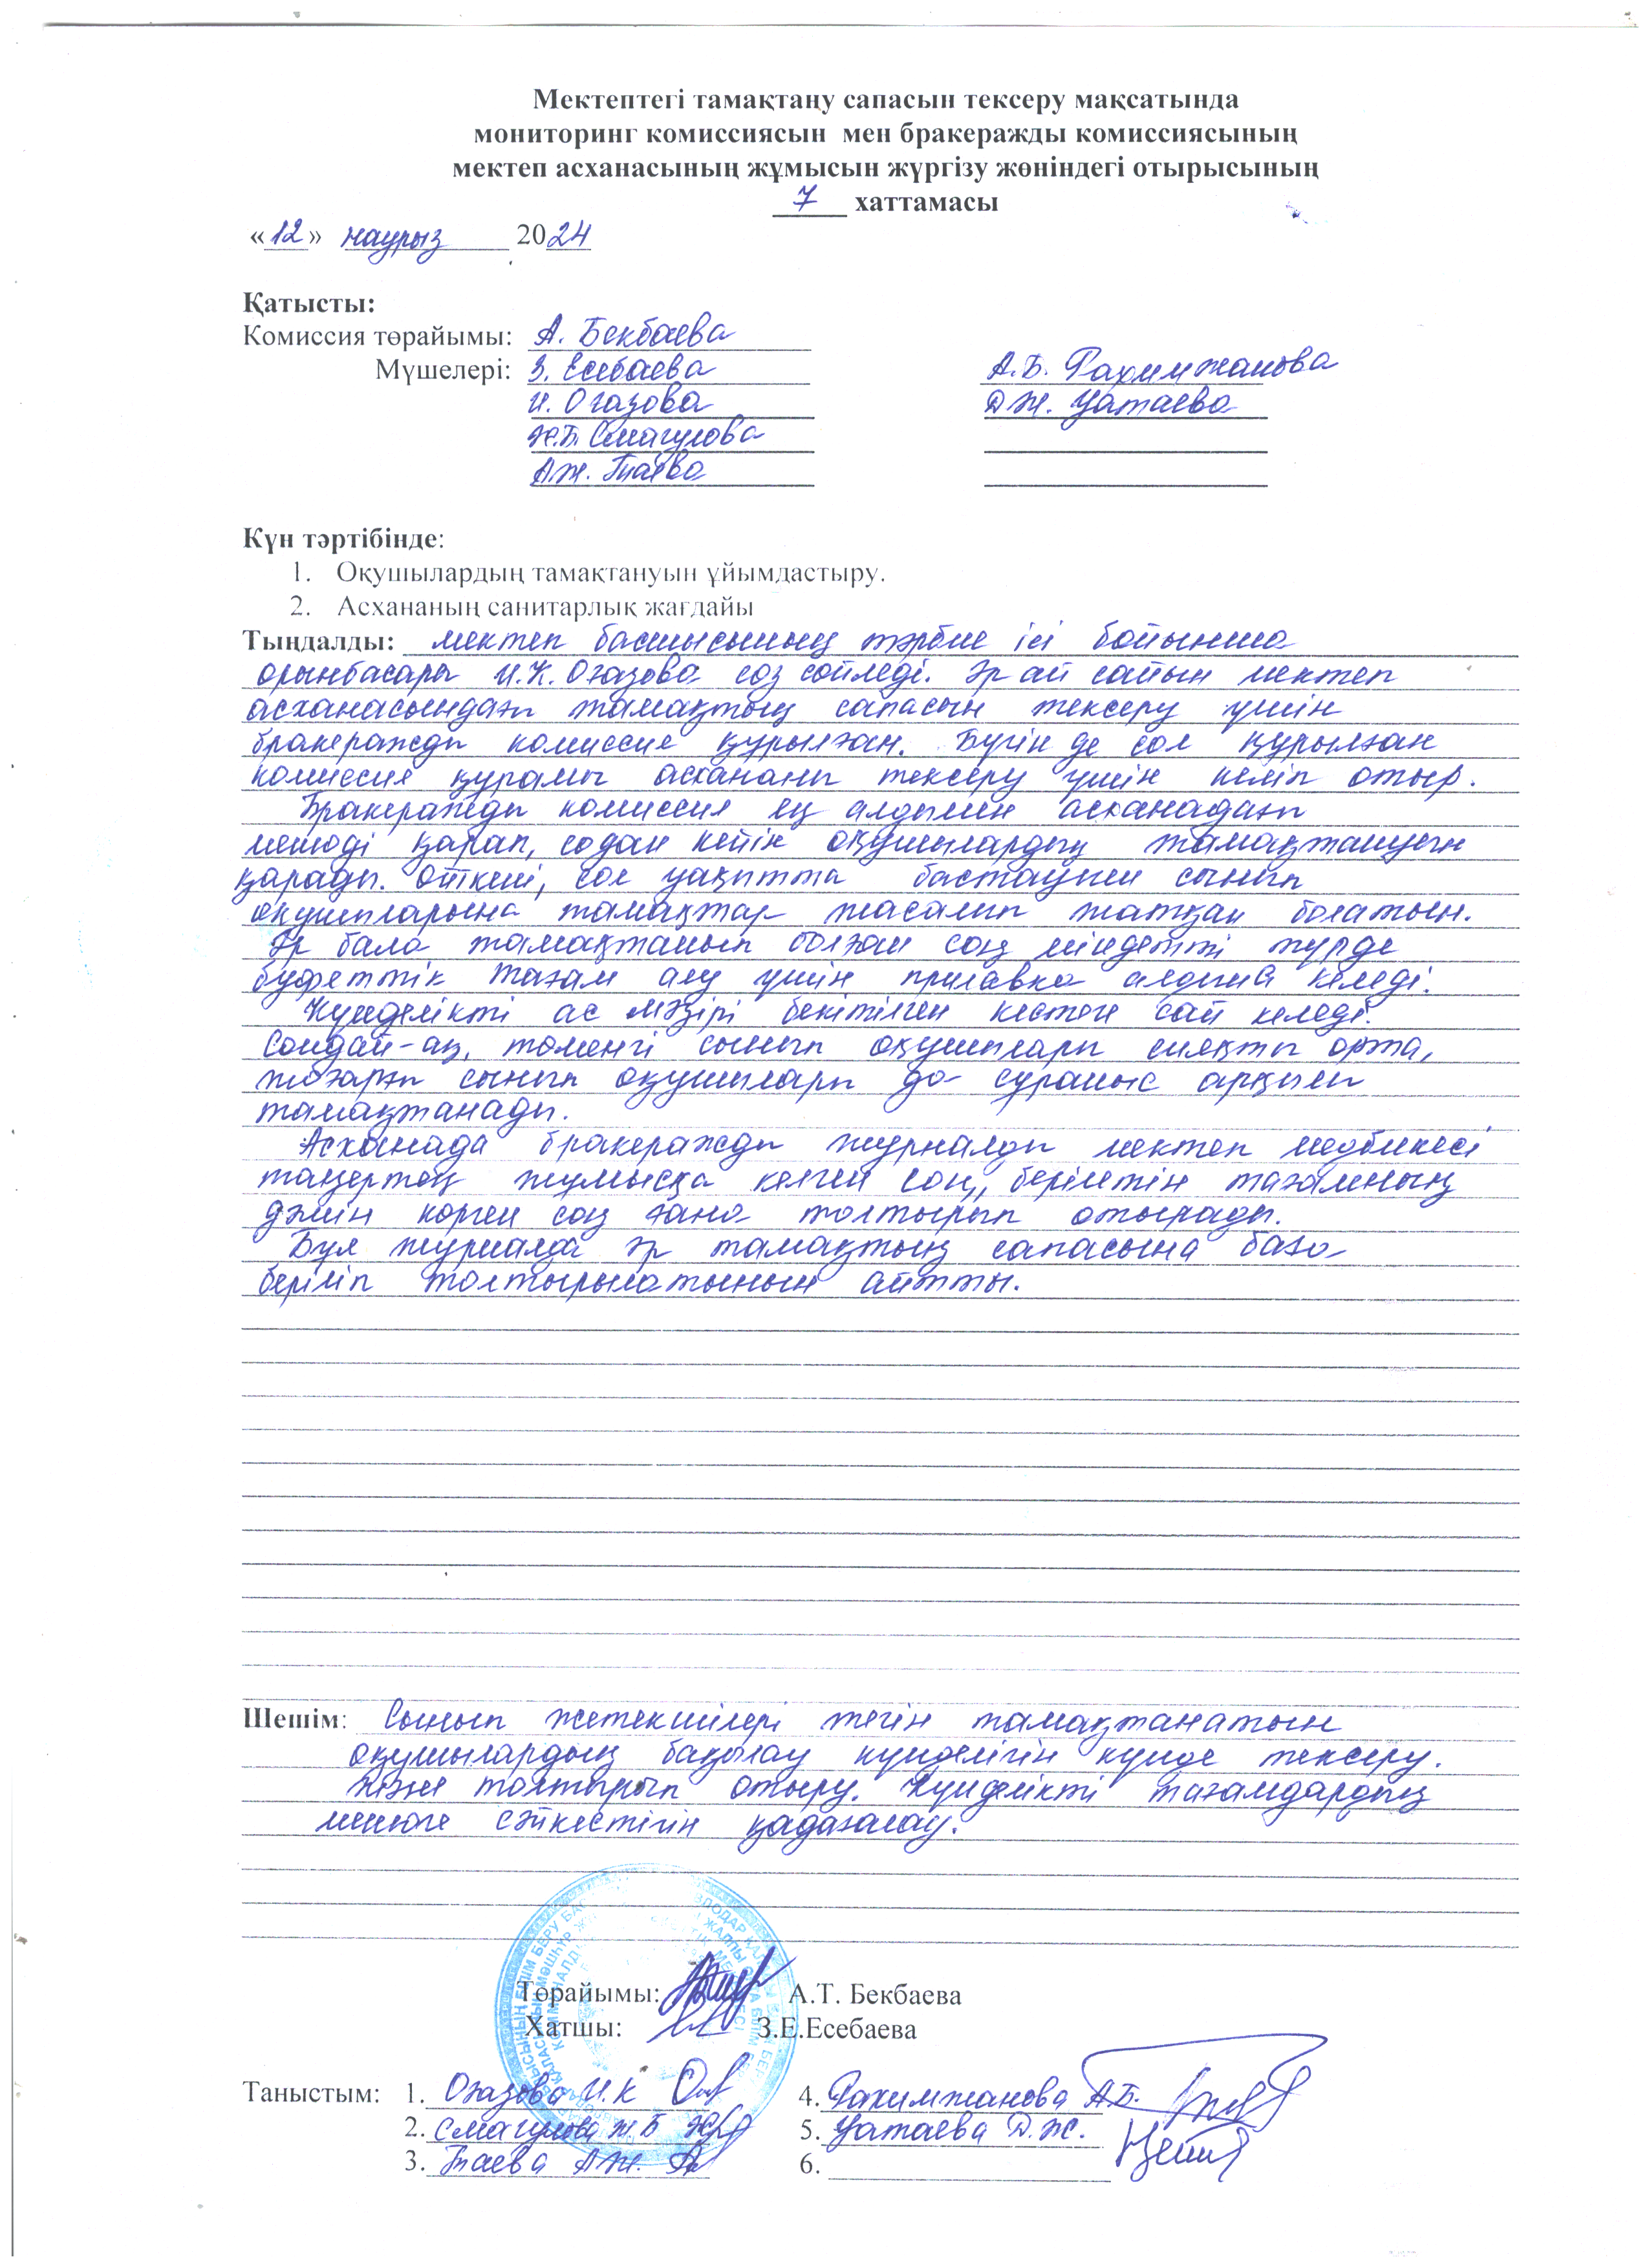 Мектептегі тамақтану сапасын тексеру мақсатында
мониторинг комиссиясын мен бракеражды комиссиясының
мектеп асханасының жұмысын жүргізу жөніндегі отырысының
7 хаттамасы
«12» наурыз 2024
Қатысты:
Комиссия төрайымы: А. Бекбаева
Мүшелері: З. Есебаева А.Б. Рахимжанова
И. Оғазова Д.Ж. Уатаева
Ж.Б. Смагулова
А.Ж.
Күн тәртібінде:
1. Оқушылардың тамақтануын ұйымдастыру.
2. Асхананың санитарлық жағдайы
Тыңдалды: мектеп басшысының тәрбие ісі бойынша
орынбасары И.К. Оғазова сөз сөйледі. Әр ай сайын мектеп
асханасындағы тамақтың сапасын тексеру үшін
бракеражды комиссия құрылған. Бүгін де сол құрылған
комиссия құрамы асхананы тексеру үшін келіп отыр.
Бракеражды комиссия ең алдымен асханадағы
менюді қарап, содан кейін оқушылардың тамақтануын
қарады. Өйткені, сол уақытта бастауыш сынып
оқушыларына тамақтар жасалып жатқан болатын.
Әр бала тамақтанып болған соң міндетті түрде
буфеттік тағам алу үшін прилавка алдына келеді.
Күнделікті ас мәзірі бекітілген кестеге сай келеді.
Сондай-ақ, төменгі сынып оқушылары сияқты орта,
жоғарғы сынып оқушылары да сұраныс арқылы
тамақтанады.
Асханада бракеражды журналды мектеп медбикесі
таңертең жұмысқа келген соң, берілетін тағамның
дәмін көрген соң ғана толтырып отырады.
Бұл журналда әр тамақтың сапасына баға
беріліп толтырылатынын айтты.
Шешім: Сынып жетекшілері тегін тамақтанатын
оқушылардың бақылау күнделігін күнде тексеру.
және толтырып отыру. Күнделікті тағамдардың
менюге сәйкестігін қадағалау.
Төрайымы: А.Т. Бекбаева
Хатшы: З.Е.Есебаева
Таныстым: 1. Оғазова И.К 4. Рахимжанова А.Б.
2. Смагулова Ж.Б 5. Уатаева Д.Ж.
3. А.Ж. 6.